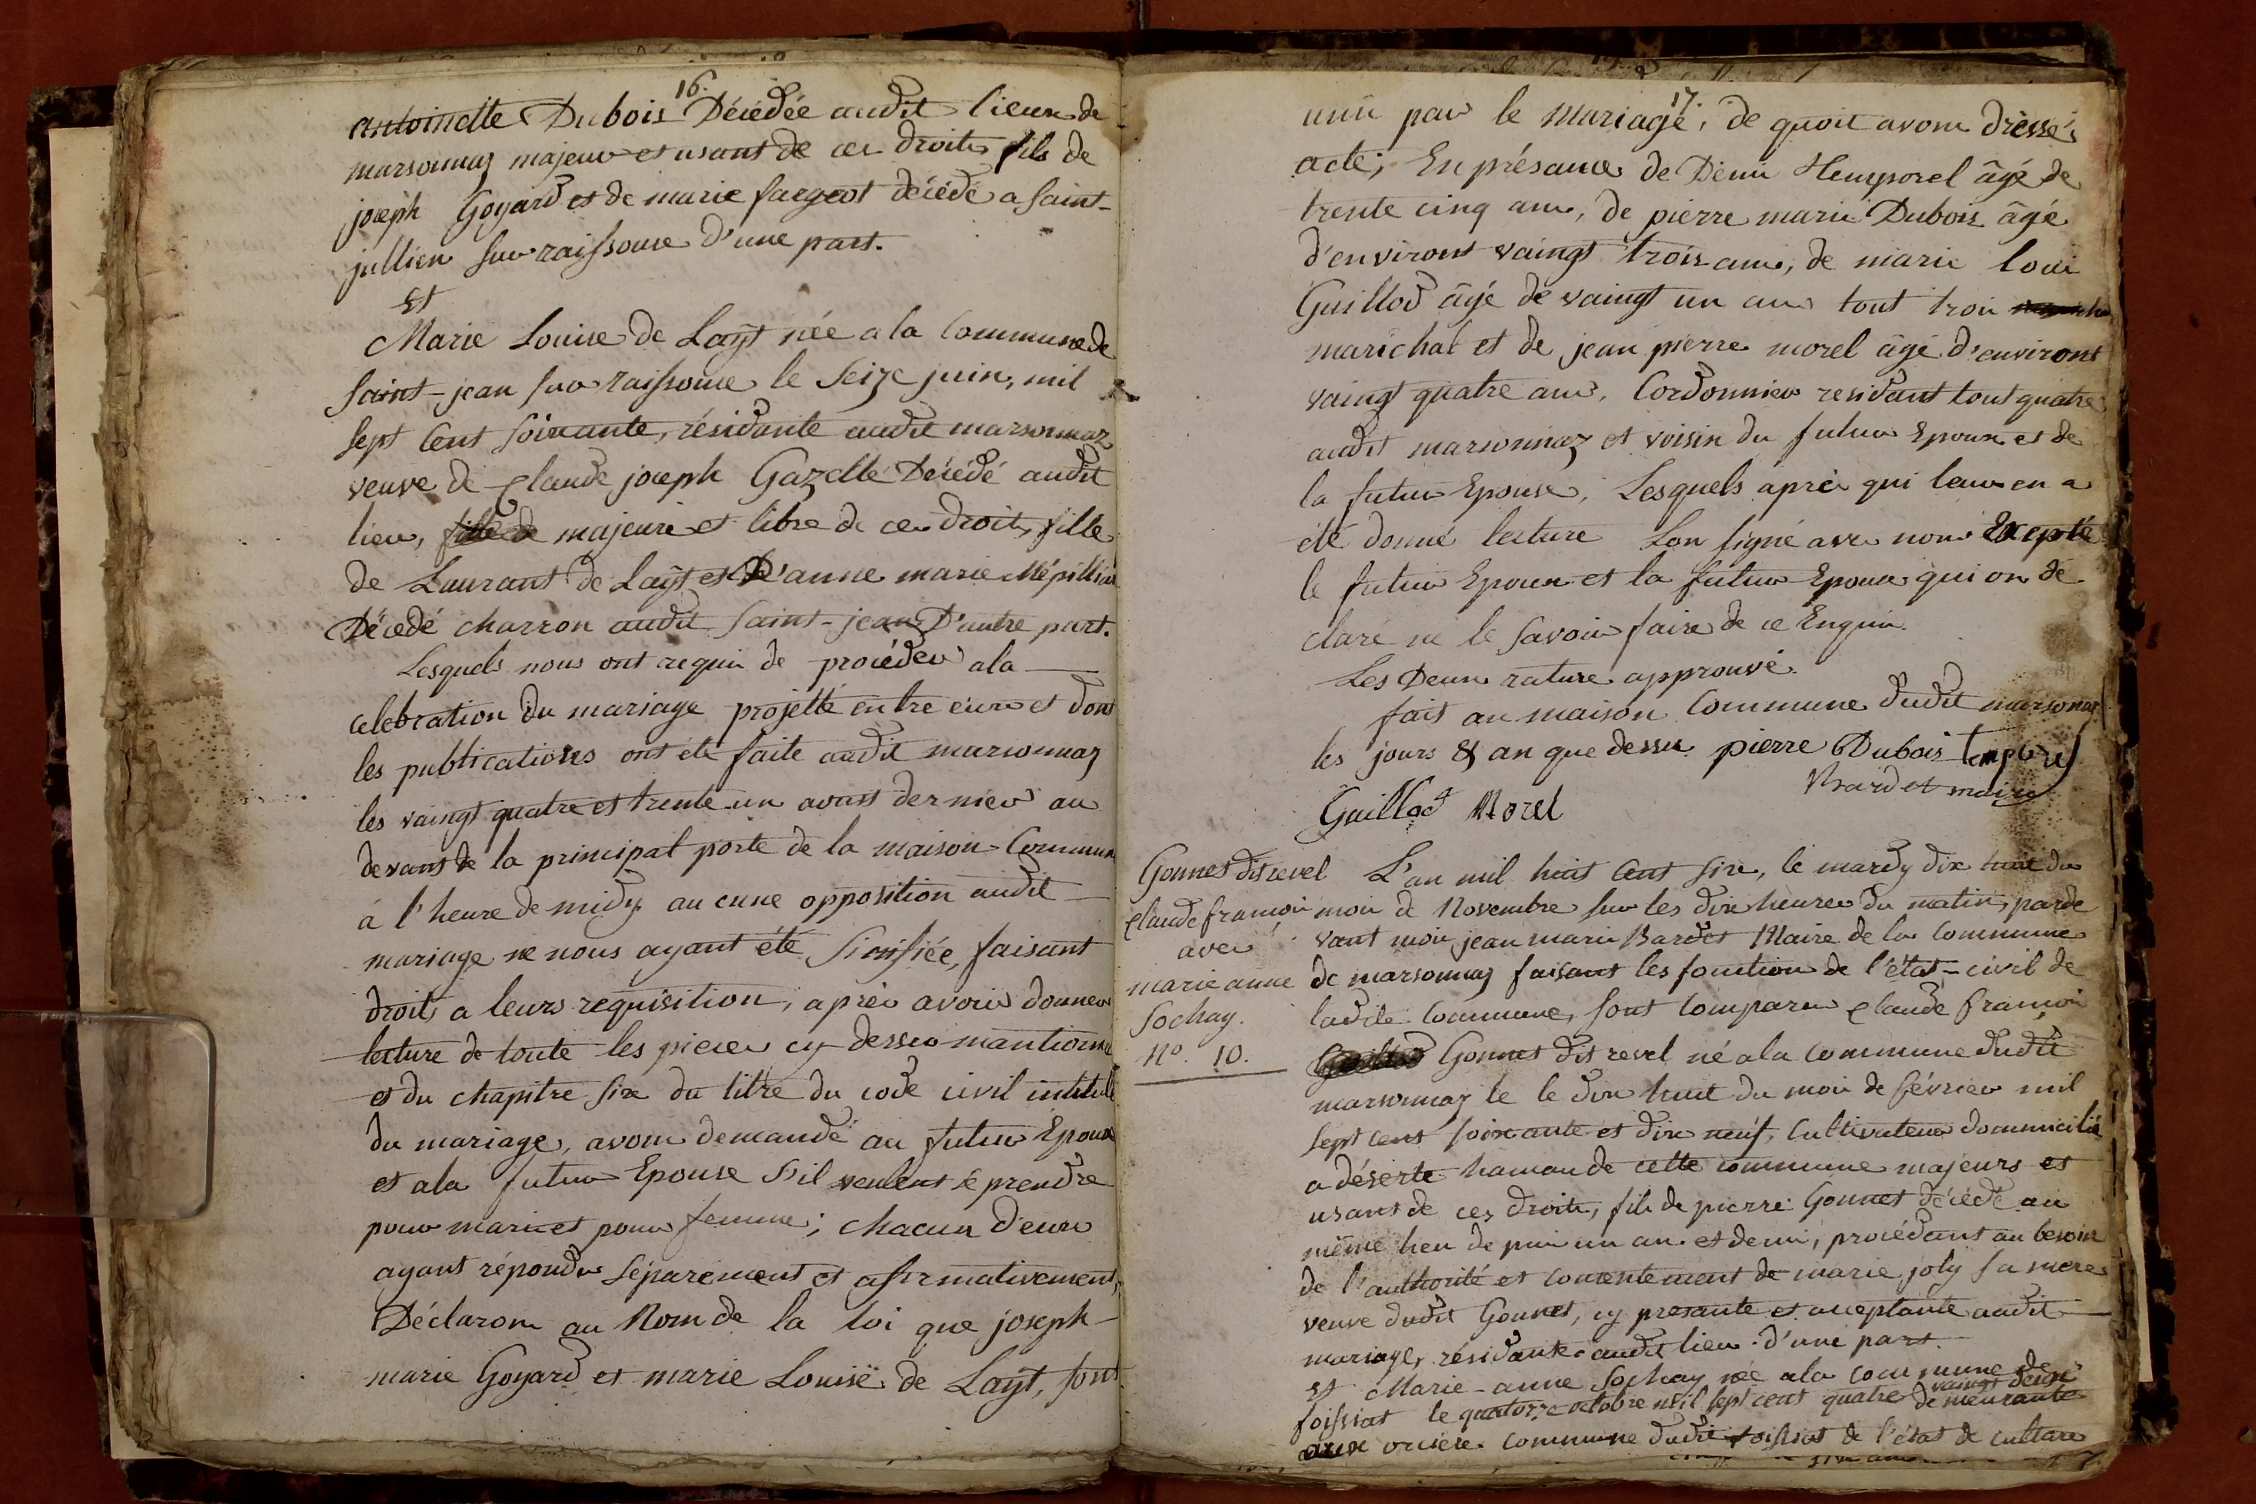 16.
antoinette Dubois Décédée audit lieux de
marsonnaz majeur et usant de ces droits fils de
joseph Goyard et de marie fargeot décédé a Saint-
jullien sur raissouse d'une part.
Et
Marie Louise de Layt née a la Commune de
Saint-jean sur raissouse le Seize juin, mil
sept Cent soixante, résidante audit marsonnaz
veuve de Claude joseph Gazelle Décédé audit
lieu, fille de majeure et libre de ces droits, fille
de Laurant de Layt et D'anne marie
Décedé charron audit Saint-jean D'autre part.
Lesquels nous ont requis de procéder a la
celebration du mariage projetté entre eux et dont
les publications ont été faite audit marsonnaz
les vaingt quatre et trente un avant dernier au
devant de la principal porte de la maison Commune
à l'heure de midy aucune opposition audit
mariage ne nous ayant été Sinifiée, faisant
droit a leurs requisition, après avoir donner
lecture de toute les pieces cy dessus mantionné
et du chapitre six du titre du code civil intitulé
du mariage, avons demandé au futur Epoux
et a la futur Epouse S'il veulent se prendre
pour mari et pour femme; chacun d'eux
ayant répondu Séparément et afirmativement,
Déclarons au Nom de la loi que joseph
marie Goyard et marie Louise de Layt, sont
17.
unie par le Mariage, de quoit avons dressé
acte; En présance de Denis Hemporel âgé de
trente cinq ans, de pierre marie Dubois âgé
d'environt vaingt trois ans, de marie loui
Guillod âgé de vaingt un ans tout trois
marichal et de jean pierre morel âgé d'environt
vaingt quatre ans, Cordonnier residant tout quatre
audit marsonnaz et voisin du futur Epoux et de
la futur Epouse, Lesquels après qui leur en a
été donné lecture Son signé avec nous Excepté
le futur Epoux et la futur Epoux qui on dé
claré ne le Savoir faire de ce Enquis.
Les Deux rature approuvé.
fait an maison Commune dudit marsonnaz
les jours & an que dessus pierre Dubois temporel
Bardet maire
Guillod Morel
Gonnet dit revel
Claude françois
avec
marie anne
Sochay.
No. 10.
L'an mil huit Cent six, le mardy dix huit du
mois de Novembre sur les dix heures du matin, parde
vant mois, jean marie Bardet Maire de la Commune
de marsonnaz faisant les fonction de l'état-civil de
ladite Commune, sont Comparu Claude françois
Guillod Gonnet dit revel né a la Commune dudit
marsonnaz le le dix huit du mois de février mil
sept cent soixante et dix neuf, Cultivateur dommicilié
a déserte hamau de cette commune majeurs et
usant de ces droits, fils de pierre Gonnet décédé au
même lieu depuis un an et demi, procédant au besoin
de l'authorité et consentement de marie joly sa mere
veuve dudit Gonnet, cy presante et acceptante audit
mariage, résidante audit lieu d'une part.
Et Marie-anne Sochay née a la Commune de
foissiat le quatorze octobre mil sept cent quatre vaingt demeurante
aux orcière Commune dudit foissiat de l'état de culture